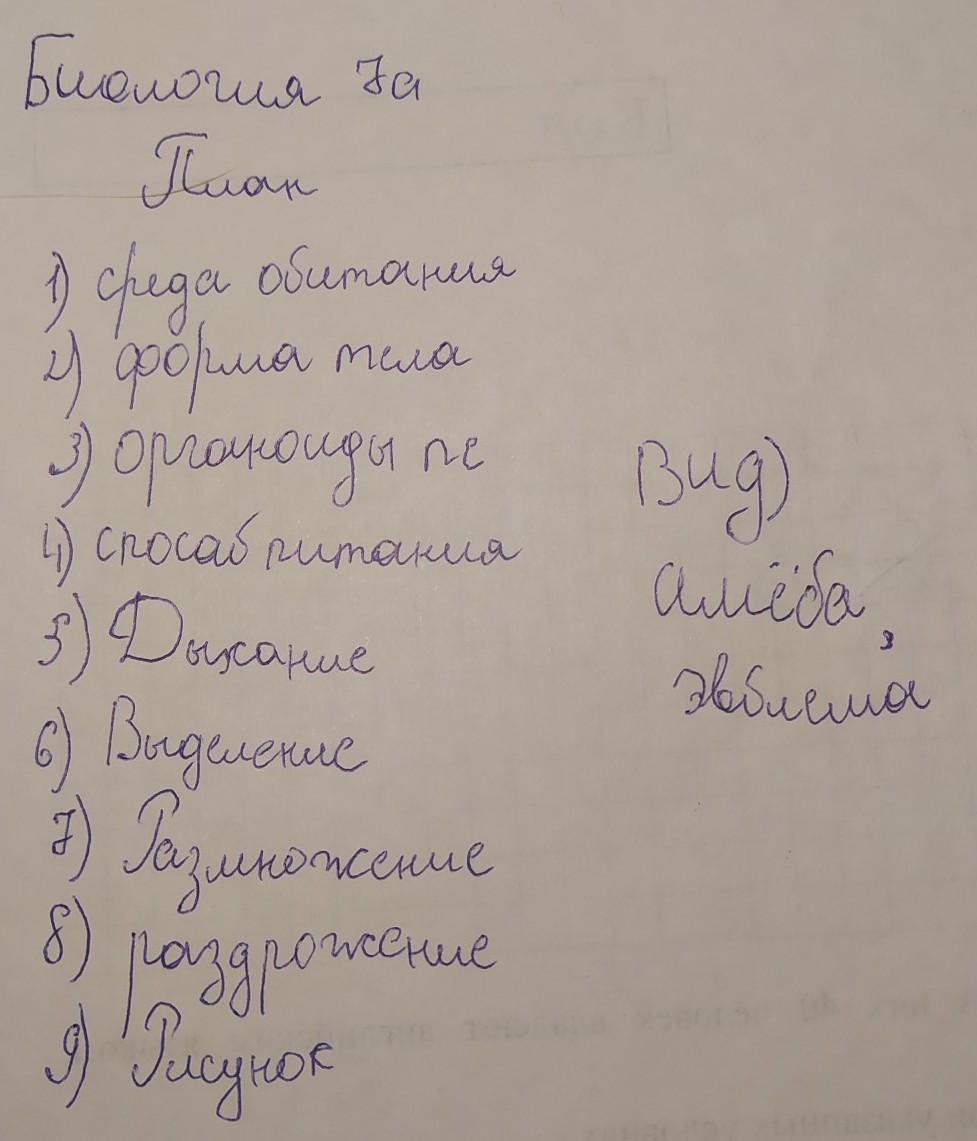 Биология 7а
План
1) среда обитания
2) форма тела
3) органоиды пе
4) способ питания
5) Дыхание
6) Выделение
7) Размножение
8) раздрожение
9) Рисунок
Вид)
Амёба,
эвблема